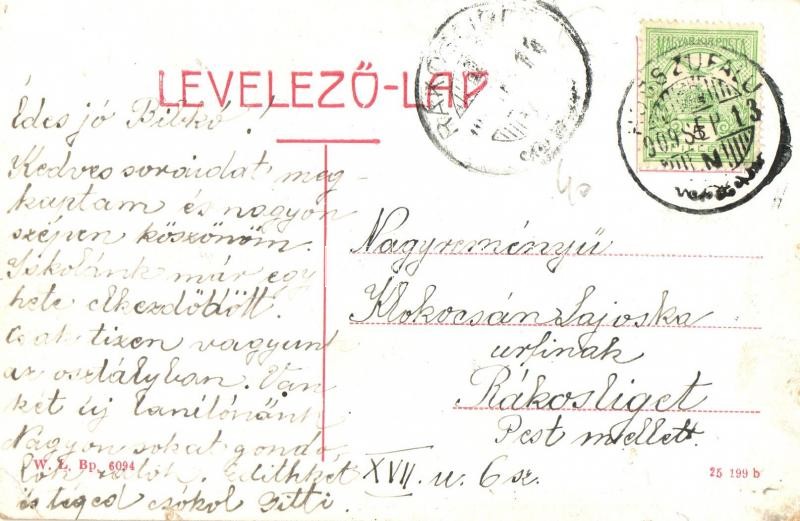 LEVELEZŐ-LAP
MAGYAR KIR. POSTA
HOSSZUFALU
909 SEP 13
Édes jó Bibkó!
Kedves soraidat meg-
kaptam és nagyon
szépen köszönöm.
Iskolánk már egy
hete elkezdődött.
Csak tizen vagyunk
az osztályban. Van
két új tanítónőnk
Nagyon sokat gondo
lok rátok. Edithket
és téged csokol Ditti.
Nagyreményű
Klokocsán Lajoska
urfinak
Rákosliget
Pest mellett
XVII. u. 6 sz.
W. L. Bp. 6094
25 199 b